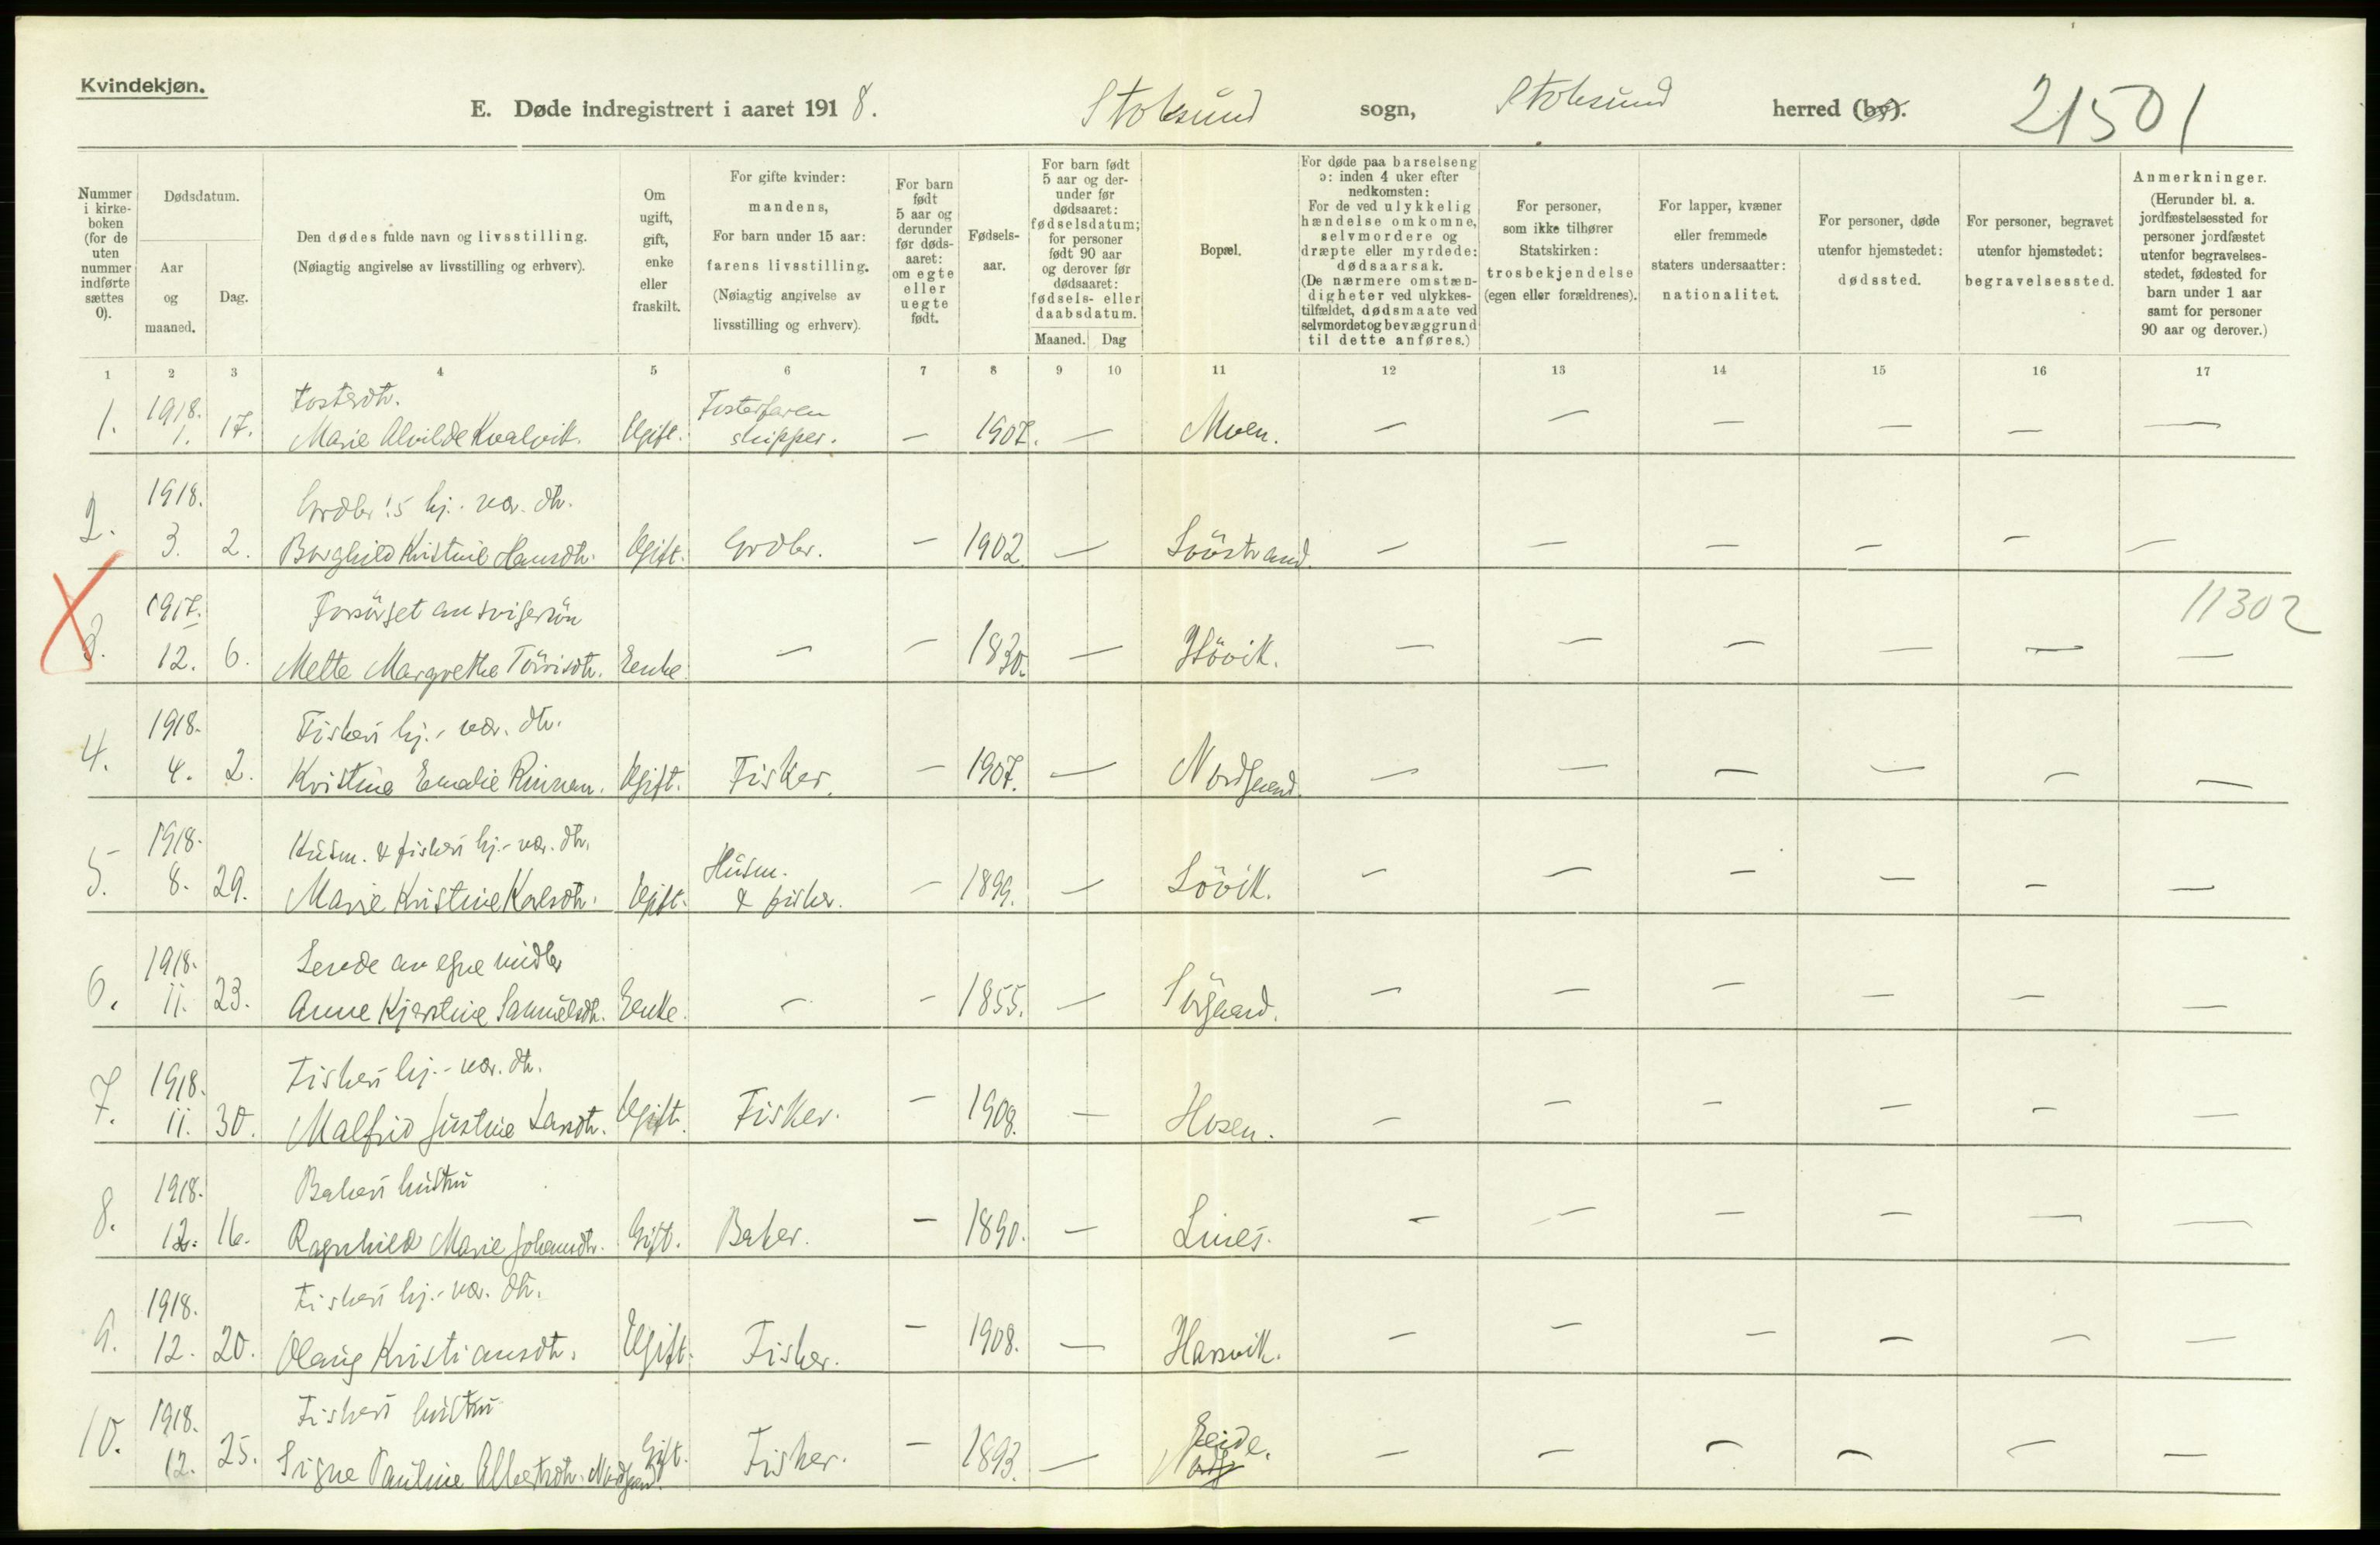 Kvindekjøn.
E. Døde indregistrert i aaret 1918. Stoksund sogn, Stoksund herred (by). 21501
Nummer i kirke-boken (for de uten nummer indførte sættes 0).
Dødsdatum.
Aar og maaned.
Dag.
Den dødes fulde navn og livsstilling.
(Nøiagtig angivelse av livsstilling og erhverv).
Om ugift, gift, enke eller fraskilt.
For gifte kvinder: mandens,
For barn under 15 aar: farens livsstilling.
(Nøiagtig angivelse av livsstilling og erhverv).
For barn født 5 aar og derunder før døds-aaret: om egte eller uegte født.
Fødsels-aar.
For barn født 5 aar og der-under før dødsaaret: fødselsdatum; for personer født 90 aar og derover før dødsaaret: fødsels- eller daabsdatum.
Maaned. Dag
Bopæl.
For døde paa barselseng ɔ: inden 4 uker efter nedkomsten:
For de ved ulykkelig hændelse omkomne, selvmordere og dræpte eller myrdede: dødsaarsak.
(De nærmere omstæn-digheter ved ulykkes-tilfældet, dødsmaate ved selvmordet og bevæggrund til dette anføres.)
For personer, som ikke tilhører Statskirken: trosbekjendelse (egen eller forældrenes).
For lapper, kvæner eller fremmede staters undersaatter: nationalitet.
For personer, døde utenfor hjemstedet: dødssted.
For personer, begravet utenfor hjemstedet: begravelsessted.
Anmerkninger.
(Herunder bl. a. jordfæstelsessted for personer jordfæstet utenfor begravelses-stedet, fødested for barn under 1 aar samt for personer 90 aar og derover.)
1 2 3 4 5 6 7 8 9 10 11 12 13 14 15 16 17
1918. Fosterdtr. Fosterfaren
1. 1. 17. Marie Alvilde Kvalvik. Ugift. skipper. — 1907. — Moen. — — — — — —
1918. Grdbr.s hj.-vær. dtr.
2. 3. 2. Borghild Kristine Hansdtr. Ugift. Grdbr. — 1902. — Sööstrand. — — — — — —
1917. Forsörget av svigersön 11302
3. 12. 6. Mette Margrethe Törrisdtr. Enke. — — 1830. — Hövik. — — — — — —
1918. Fiskers hj.-vær. dtr.
4. 4. 2. Kristine Emalie Rinnan. Ugift. Fisker. — 1907. — Nordgaard. — — — — — —
1918. Husm. & fiskers hj.-vær. dtr. Husm.
5. 8. 29. Marie Kristine Karlsdtr. Ugift. & fisker. — 1899. — Sövik. — — — — — —
1918. Levde av egne midler
6. 11. 23. Anne Kjerstine Samuelsdtr. Enke. — — 1855. — Sörgaard. — — — — — —
1918. Fiskers hj.-vær. dtr.
7. 11. 30. Malfrid Justine Larsdtr. Ugift. Fisker. — 1908. — Hosen. — — — — — —
1918. Bakers hustru
8. 12. 16. Ragnhild Marie Johansdtr. Gift. Baker. — 1890. — Lines. — — — — — —
1918. Fiskers hj.-vær. dtr.
9. 12. 20. Olaug Kristiansdtr. Ugift. Fisker. — 1908. — Harsvik. — — — — — —
1918. Fiskers hustru Eide.
10. 12. 25. Signe Pauline Albertsdtr. Nordgaard. Gift. Fisker. — 1893. — — — — — — —